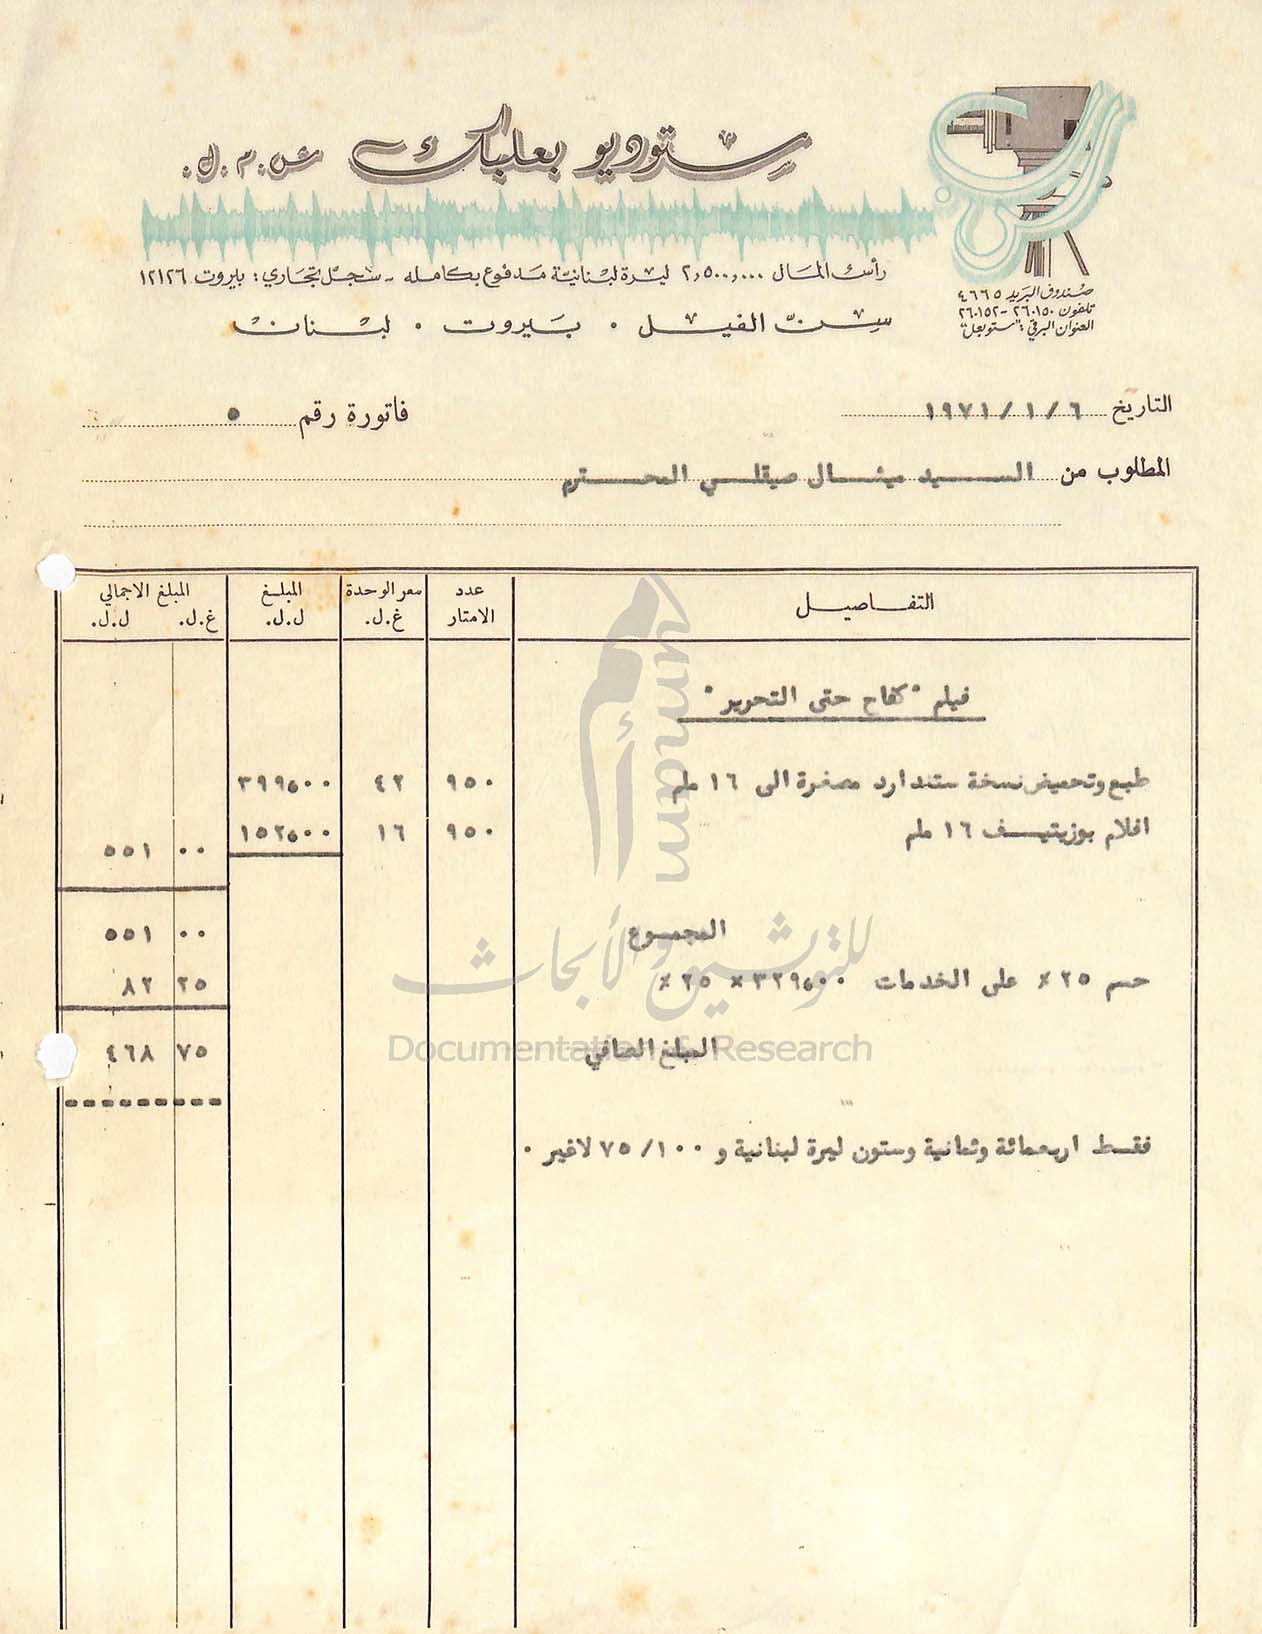 ستوديو بعلبك ش.م.ل.
رأس المال ٢,٥٠٠,٠٠٠ ليرة لبنانية مدفوع بكامله - سجل تجاري: بيروت ١٢١٢٦
سن الفيل . بيروت . لبنان
صندوق البريد ٤٦٦٥
تلفون ٢٦٠١٥٠ - ٢٦٠١٥٢
العنوان البرقي: "ستوبعل"
التاريخ ٦ / ١ / ١٩٧١
فاتورة رقم ٥
المطلوب من السيد ميشال صيقلي المحترم
التفاصيل عدد الامتار سعر الوحدة غ.ل. المبلغ ل.ل. المبلغ الاجمالي غ.ل. ل.ل.
فيلم "كفاح حتى التحرير"
طبع وتحميض نسخة ستندارد مصغرة الى ١٦ ملم ٩٥٠ ٤٢ ٣٩٩٫٠٠
افلام بوزيتيف ١٦ ملم ٩٥٠ ١٦ ١٥٢٫٠٠ ٥٥١ ٠٠
المجموع ٥٥١ ٠٠
حسم ٢٥ ٪ على الخدمات ٣٢٩٫٠٠ × ٢٥ ٪ ٨٢ ٢٥
المبلغ الصافي ٤٦٨ ٧٥
فقط اربعمائة وثمانية وستون ليرة لبنانية و ٧٥/١٠٠ لاغير .
أمم
umam
للتوثيق والأبحاث
Documentation & Research